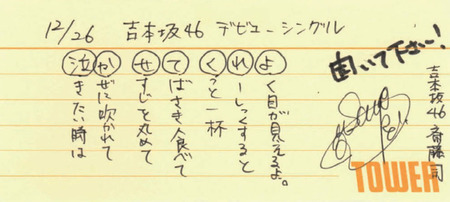 12/26 吉本坂46 デビューシングル
泣きたい時は
かぜに吹かれて
せすじを丸めて
てばさき食べて
くっと一杯
れーしっくすると
よく目が見えるよ。
聞いて下さい!
吉本坂46 斎藤司
TOWER